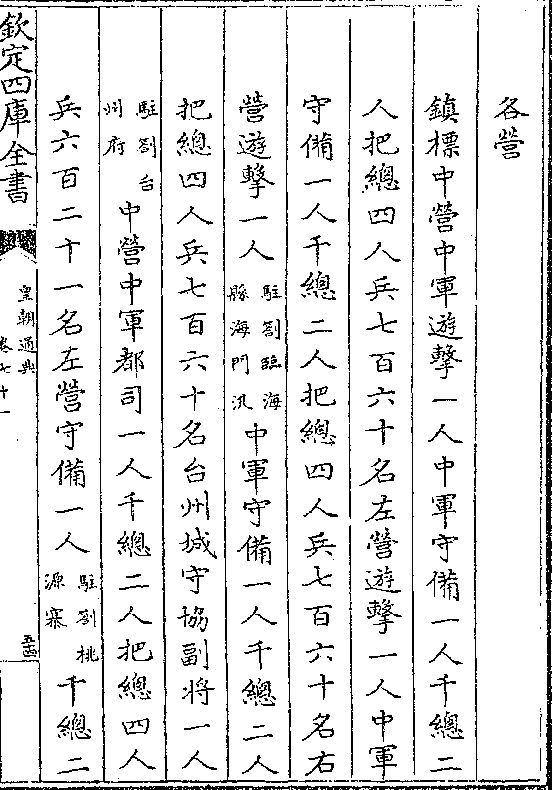 各營
鎮標中營中軍遊擊一人中軍守備一人千總二
人把總四人兵七百六十名左營遊擊一人中軍
守備一人千總二人把總四人兵七百六十名右
營遊擊一人駐劄臨海縣海門汛中軍守備一人千總二人
把總四人兵七百六十名台州城守協副將一人
駐劄台州府中營中軍都司一人千總二人把總四人
兵六百二十一名左營守備一人駐劄桃源寨千總二
欽定四庫全書
皇朝通典
卷七十一
五十四